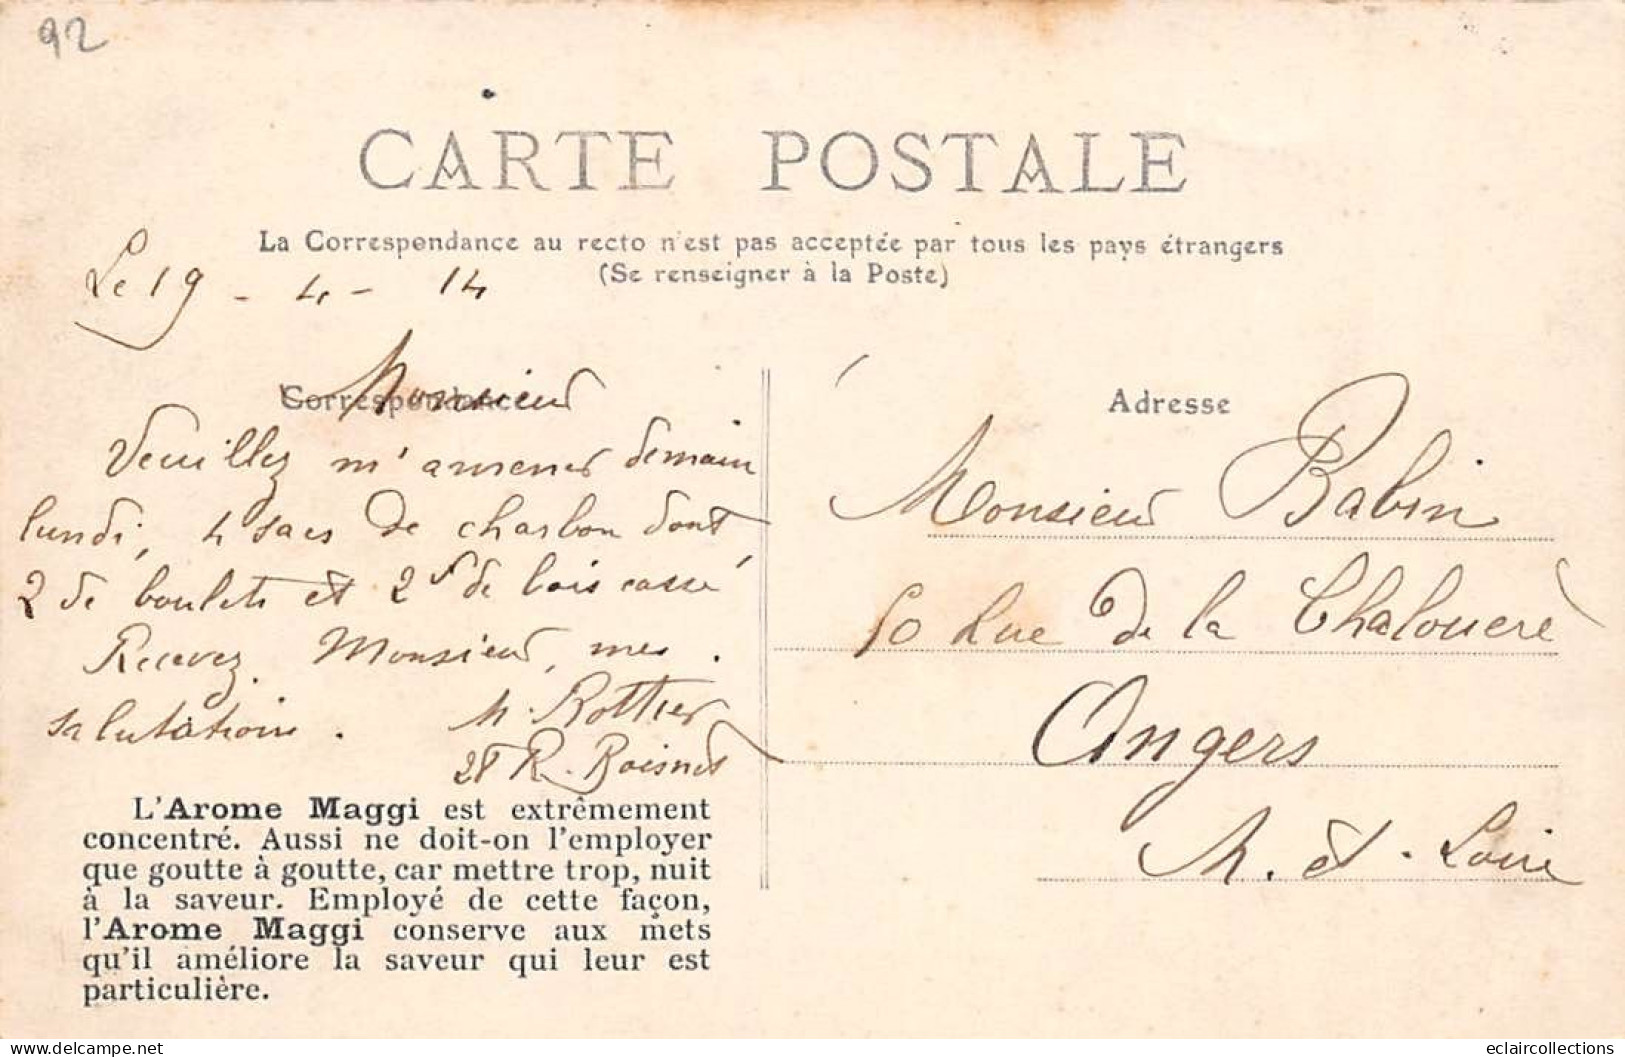 92
CARTE POSTALE
La Correspondance au recto n'est pas acceptée par tous les pays étrangers
(Se renseigner à la Poste)
Le 19 - 4 - 14
Correspondance
Monsieur
Veuillez m'amener demain
lundi, 4 sacs de charbon dont
2 de boulets et 2 s de bois cassé
Recevez Monsieur, mes
salutations.
M. Rottier
28 R. Boisnet
L'Arome Maggi est extrêmement
concentré. Aussi ne doit-on l'employer
que goutte à goutte, car mettre trop, nuit
à la saveur. Employé de cette façon,
l'Arome Maggi conserve aux mets
qu'il améliore la saveur qui leur est
particulière.
Adresse
Monsieur Babin
Rue de la Chalouère
Angers
M. et. Loire
eclaircollections